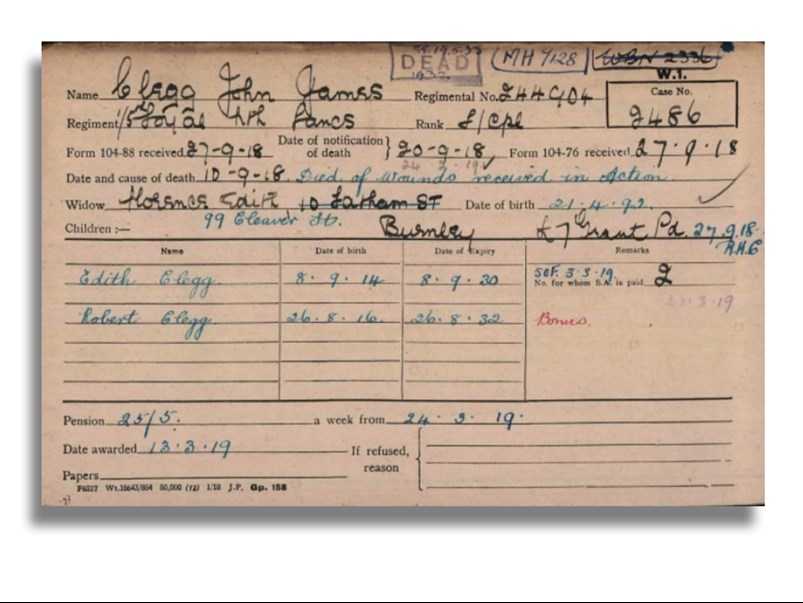 DEAD MH 7128 WBN 2336
W.I.
Name Clegg John James Regimental No. 244904 Case No.
Regiment 1/5 Loyal Nth Lancs Rank L/Cpl 2486
Form 104-88 received 27-9-18 Date of notification of death } 20-9-18 Form 104-76 received 27.9.18
Date and cause of death 10-9-18. Died of Wounds received in Action.
Widow Florence Edith 10 Latham ST Date of birth 21.4.92.
Children :— 99 Cleaver St. Burnley £7 Grant Pd. 27.9.18.
Name Date of birth Date of Expiry Remarks
Edith Clegg. 8. 9. 14 8. 9. 30 SCF. 3-3-19. No. for whom S.A. is paid 2
3.19
Robert Clegg. 26. 8. 16. 26. 8. 32 Bonus.
Pension 25/5. a week from 24. 3. 19.
Date awarded 13.3.19 If refused, reason
Papers
P6217 Wt.16643/864 50,000 (12) 1/18 J.P. Gp. 158